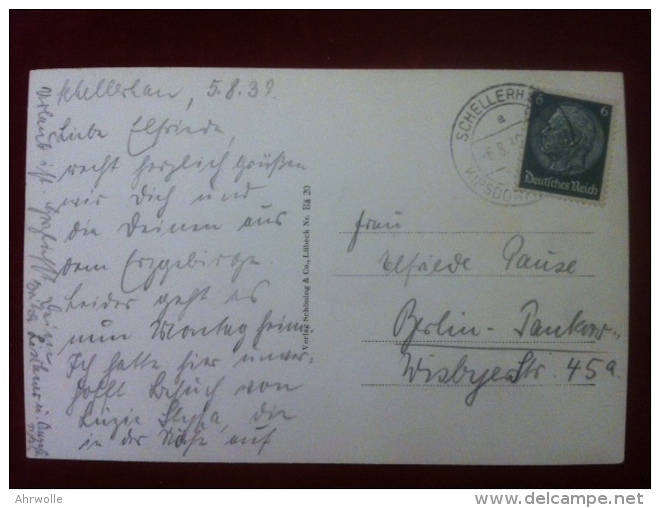 Schellerhau, 5.8.39.
Liebe Elfriede,
recht herzlich grüßen
wir Dich und
die Deinen aus
dem Erzgebirge.
Leider geht es
nun Montag heim.
Ich hatte hier unver-
hofft Besuch von
Luzie, die
in der Nähe auf
Urlaub ist. Herzlichst Deine
Verlag Schöning & Co., Lübeck Nr. Rá 20
SCHELLERH
KIPSDORF
6 6
Deutsches Reich
Frau
Elfriede Pause
Berlin-Pankow
Wisbyer Str. 45a.
Ahrwolle
delcampe.net